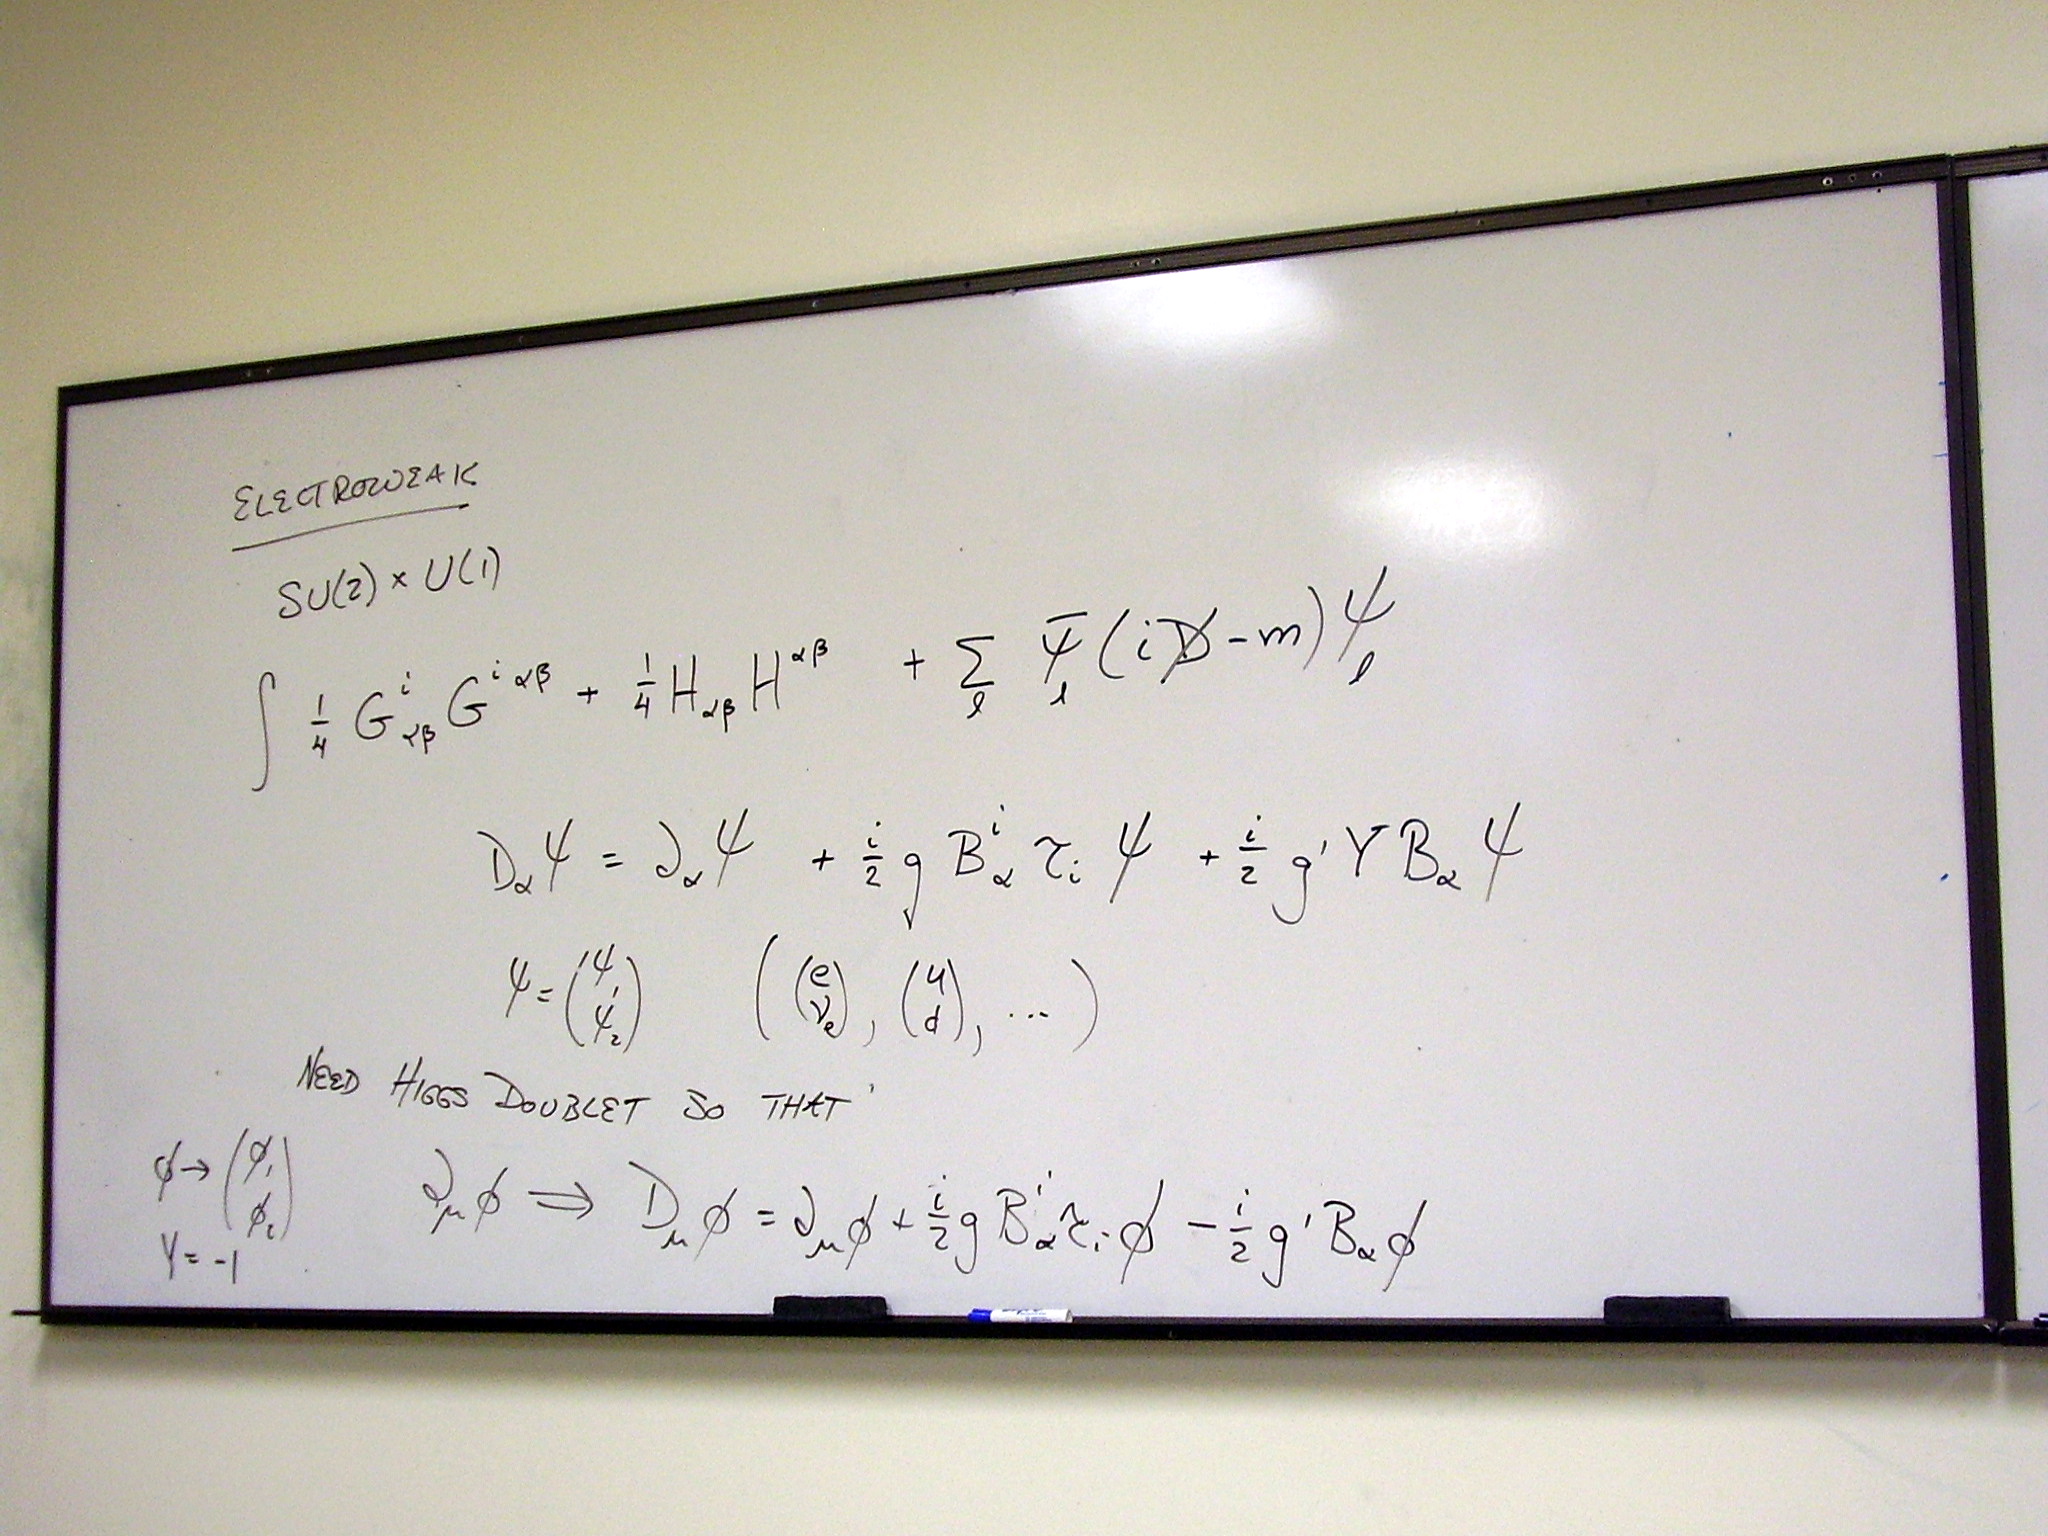 ELECTROWEAK
SU(2) × U(1)
∫ 1/4 G^i_αβ G^{i αβ} + 1/4 H_αβ H^αβ + Σ_l ψ̄_l (i D̸ - m) ψ_l
D_α ψ = ∂_α ψ + i/2 g B^i_α τ_i ψ + i/2 g' Y B_α ψ
ψ = (ψ_1 ψ_2) ((e ν_e), (u d), ...)
NEED HIGGS DOUBLET SO THAT
ϕ → (ϕ_1 ϕ_2)
Y = -1
∂_μ ϕ ⇒ D_μ ϕ = ∂_μ ϕ + i/2 g B^i_α τ_i ϕ - i/2 g' B_α ϕ